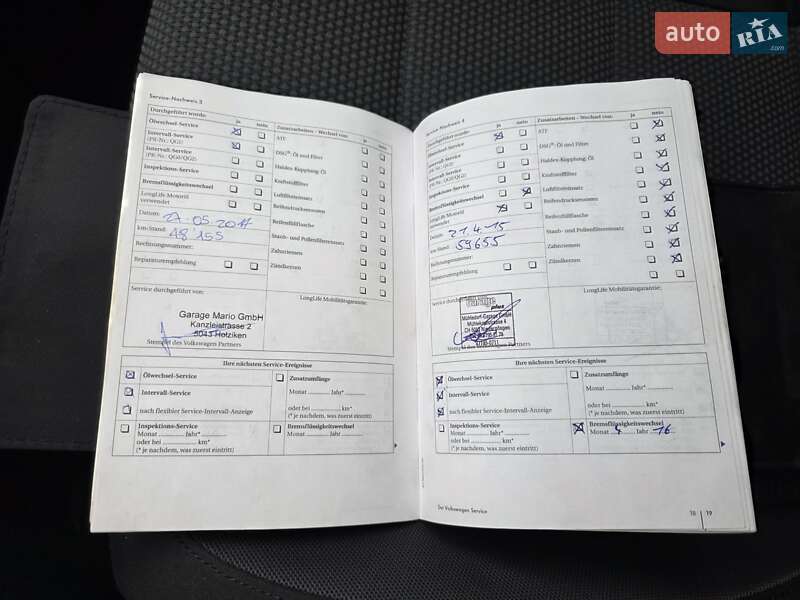 auto RIA
.com
Service-Nachweis 3
Durchgeführt wurde: ja nein Zusatzarbeiten - Wechsel von: ja nein
Ölwechsel-Service
ATF
Intervall-Service
(PR-Nr.: QG1)
DSG®-Öl und Filter
Intervall-Service
(PR-Nr.: QG0/QG2)
Haldex-Kupplung: Öl
Inspektions-Service
Kraftstofffilter
Bremsflüssigkeitswechsel
Luftfiltereinsatz
LongLife Motoröl
verwendet
Reifendruckensoren
Datum: 27.05.2011
Reifenfüllflasche
km-Stand: 18'155
Staub- und Pollenfiltereinsatz
Rechnungsnummer:
Zahnriemen
Reparaturempfehlung
Zündkerzen
Service durchgeführt von:
LongLife Mobilitätsgarantie:
Garage Mario GmbH
Kanzleistrasse 2
5043 Holziken
Stempel des Volkswagen Partners
Ihre nächsten Service-Ereignisse
Ölwechsel-Service
Zusatzumfänge
Intervall-Service
Monat Jahr*
nach flexibler Service-Intervall-Anzeige
oder bei km*
(* je nachdem, was zuerst eintritt)
Inspektions-Service
Monat Jahr*
oder bei km*
(* je nachdem, was zuerst eintritt)
Bremsflüssigkeitswechsel
Monat Jahr
Service-Nachweis 4
Durchgeführt wurde: ja nein Zusatzarbeiten - Wechsel von: ja nein
Ölwechsel-Service
ATF
Intervall-Service
(PR-Nr.: QG1)
DSG®-Öl und Filter
Intervall-Service
(PR-Nr.: QG0/QG2)
Haldex-Kupplung: Öl
Inspektions-Service
Kraftstofffilter
Bremsflüssigkeitswechsel
Luftfiltereinsatz
LongLife Motoröl
verwendet
Reifendrucksensoren
Datum: 21.4.15
Reifenfüllflasche
km-Stand: 59655
Staub- und Pollenfiltereinsatz
Rechnungsnummer:
Zahnriemen
Reparaturempfehlung
Zündkerzen
Service durchgeführt von:
LongLife Mobilitätsgarantie:
Garage
plus
Stempel des Volkswagen Partners
Ihre nächsten Service-Ereignisse
Ölwechsel-Service
Zusatzumfänge
Intervall-Service
Monat Jahr*
nach flexibler Service-Intervall-Anzeige
oder bei km*
(* je nachdem, was zuerst eintritt)
Inspektions-Service
Monat Jahr*
oder bei km*
(* je nachdem, was zuerst eintritt)
Bremsflüssigkeitswechsel
Monat 4 Jahr 16
Der Volkswagen Service
18 | 19